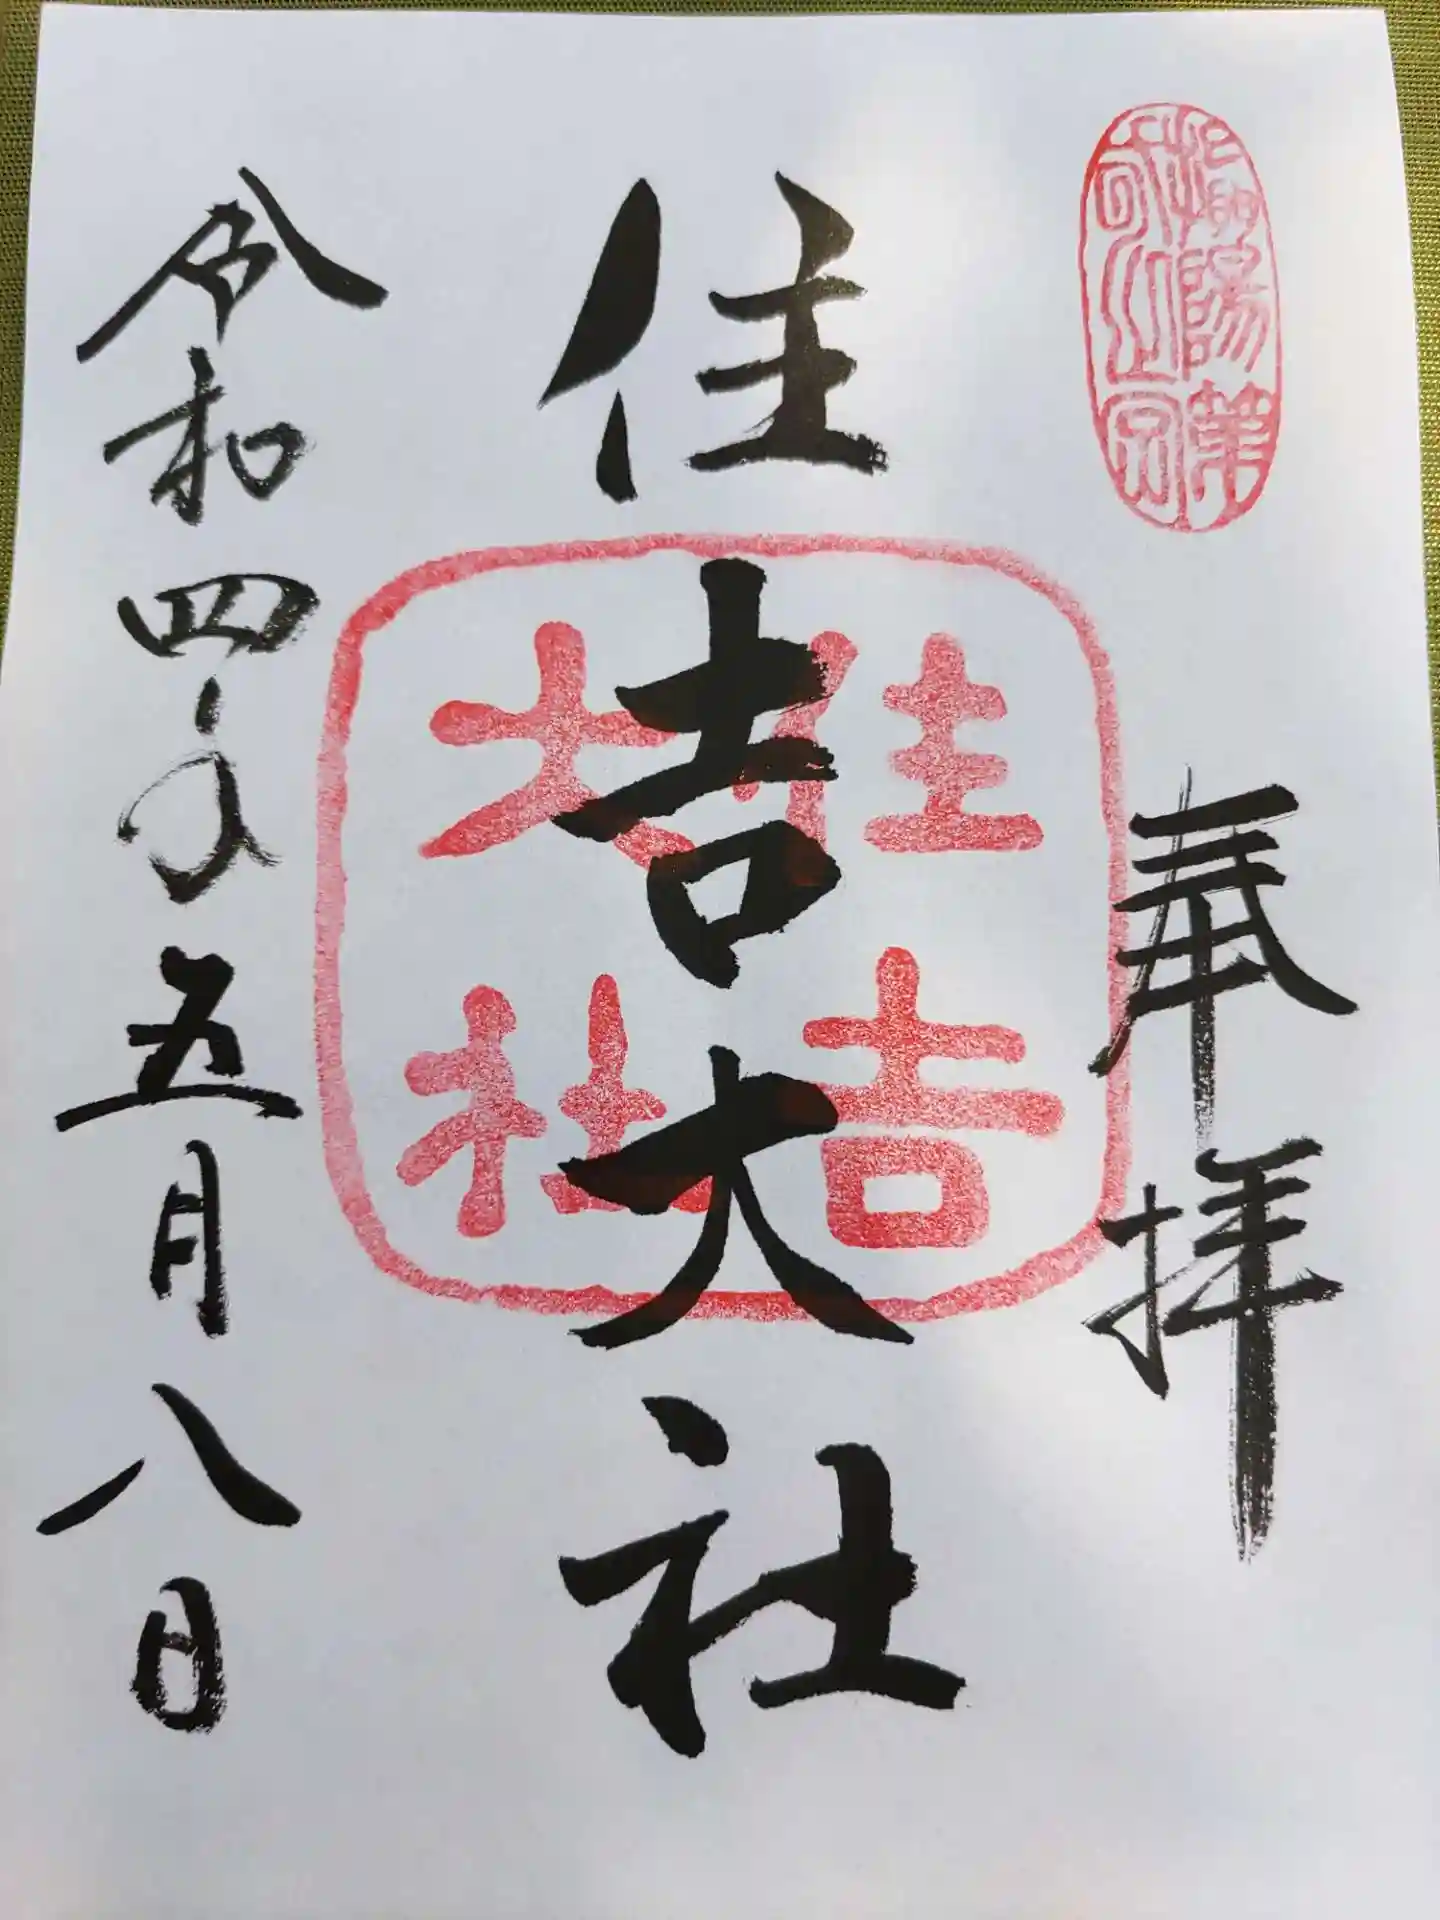 奉拝
住吉大社
住吉大社
令和四年五月八日